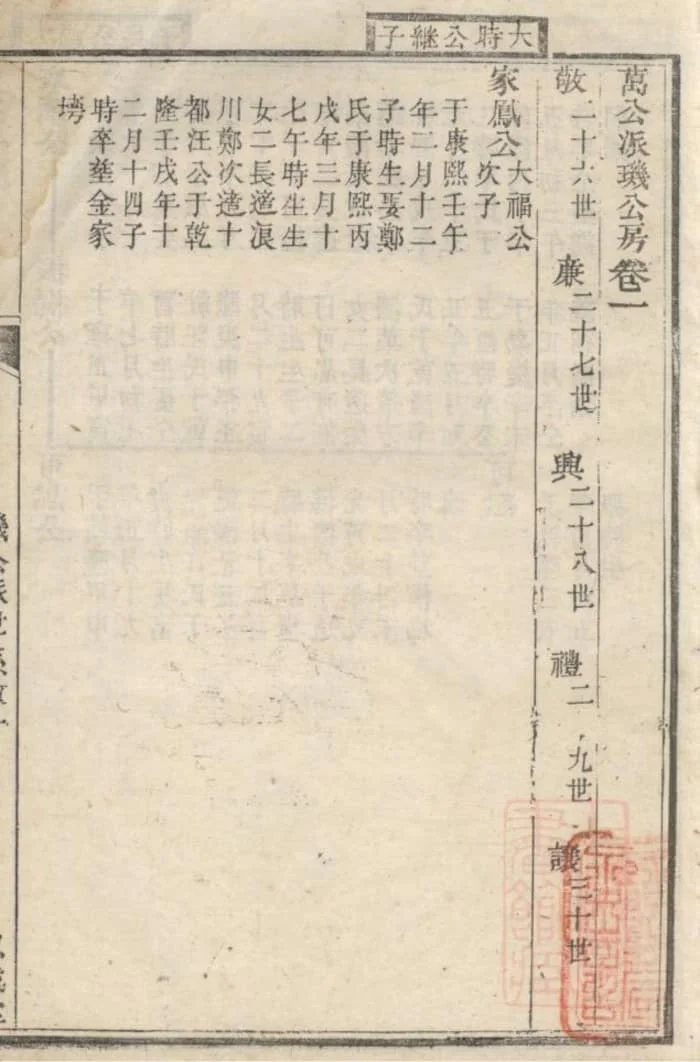 大時公繼子
萬公派璣公房卷一
敬二十六世 廉二十七世 興二十八世 禮二 九世 議三十世
家鳳公大福公
次子
于康熙壬午
年二月十二
子時生娶鄭
氏于康熙丙
戌年三月十
七午時生生
女二長適浪
川鄭次適十
都汪公于乾
隆壬戌年十
二月十四子
時卒塟金家
塝